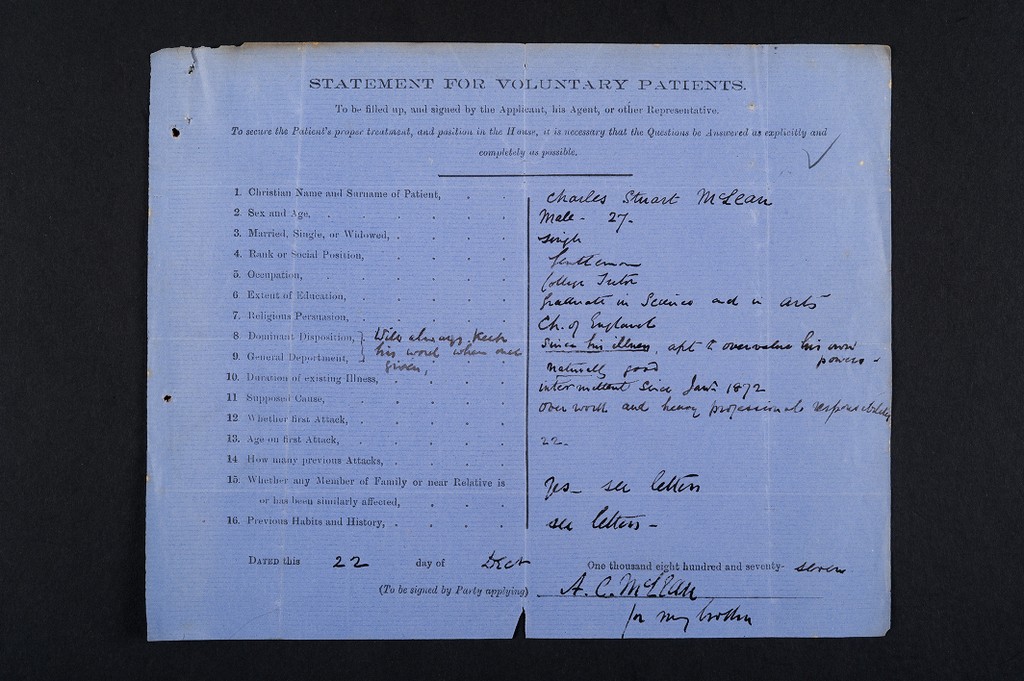 STATEMENT FOR VOLUNTARY PATIENTS.
To be filled up, and signed by the Applicant, his Agent, or other Representative.
To secure the Patient's proper treatment, and position in the House, it is necessary that the Questions be Answered as explicitly and
completely as possible.
1. Christian Name and Surname of Patient, Charles Stuart McLean
2. Sex and Age, Male - 27-
3. Married, Single, or Widowed, Single
4. Rank or Social Position, Gentleman
5. Occupation, College Tutor
6. Extent of Education, Graduate in Science and in Arts
7. Religious Persuasion, Ch. of England
8 Dominant Disposition, Will always keep since his illness, apt to overvalue his own
his word when once powers -
9. General Deportment, given, naturally good
10. Duration of existing Illness, intermittent since Jany 1872
11 Supposed Cause, over work and heavy professional responsibility
12 Whether first Attack,
13. Age on first Attack, 22-
14 How many previous Attacks,
15. Whether any Member of Family or near Relative is
or has been similarly affected, Yes - see letters
16. Previous Habits and History, see letters -
DATED this 22 day of Decr One thousand eight hundred and seventy- seven
(To be signed by Party applying) A. C. McLean
for my brother